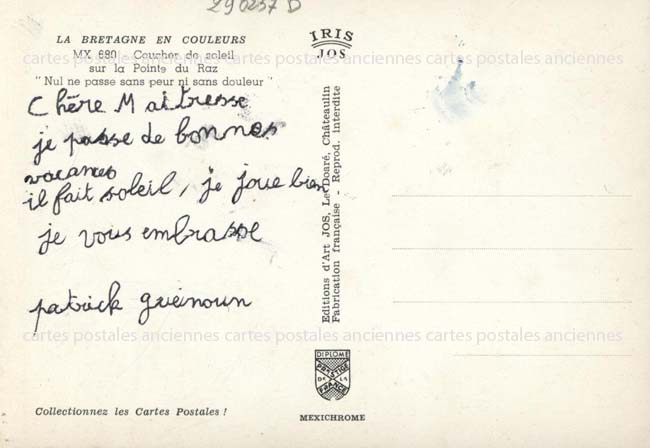 290237 D
LA BRETAGNE EN COULEURS
MX 680 - Coucher de soleil
sur la Pointe du Raz
"Nul ne passe sans peur ni sans douleur"
cartes postales anciennes cartes postales anciennes cartes postales anciennes
Chère Maitresse
je passe de bonnes
vacances
il fait soleil, je joue bien
je vous embrasse
patrick guénoun
cartes postales anciennes cartes postales anciennes cartes postales anciennes
Collectionnez les Cartes Postales !
IRIS
JOS
Editions d'Art JOS, Le Doaré, Châteaulin
Fabrication française - Reprod. Interdite
DIPLOME
PRESTIGE
DE LA
FRANCE
MEXICHROME